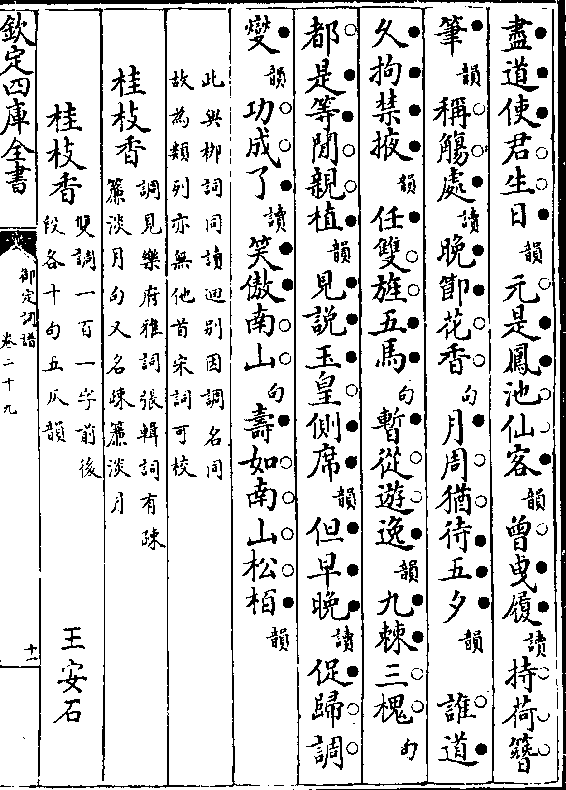 盡道使君生日韻元是鳳池仙客韻曾曳履讀持荷簪
筆韻稱觴處讀晚節花香句月周猶待五夕韻誰道
久拘禁掖韻任雙旌五馬句暫從遊逸韻九棘三槐句
都是等閒親植韻見說玉皇側席韻但早晚讀促歸調
爕韻功成了讀笑傲南山句壽如南山松栢韻
此與柳詞同讀迥别因調名同
故為類列亦無他首宋詞可校
桂枝香調見樂府雅詞張輯詞有疎
簾淡月句又名疎簾淡月
桂枝香雙調一百一字前後
段各十句五仄韻
王安石
欽定四庫全書
御定詞譜
卷二十九
十一